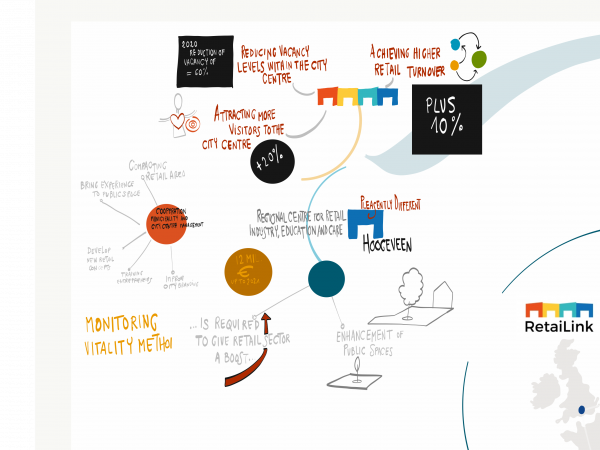 2020
REDUCTION OF
VACANCY OF
= 60%
REDUCING VACANCY
LEVELS WITHIN THE CITY
CENTRE
ACHIEVING HIGHER
RETAIL TURNOVER
PLUS
10%
ATTRACTING MORE
VISITORS TO THE
CITY CENTRE
+20%
COMPACTING
RETAIL AREA
BRING EXPERIENCE
TO PUBLIC SPACE
COOPERATION
MUNICIPALITY AND
CITY CENTER MANAGEMENT
DEVELOP
NEW RETAIL
CONCEPTS
TRAINING
ENTREPRENEURS
REGIONAL CENTRE FOR RETAIL
INDUSTRY, EDUCATION AND CARE
DIFFERENT
HOOGEVEEN
12 MI.
€
MONITORING
VITALITY METHO
... IS REQUIRED
TO GIVE RETAIL SECTOR
A BOOST.
ENHANCEMENT OF
PUBLIC SPACES
RetaiLink